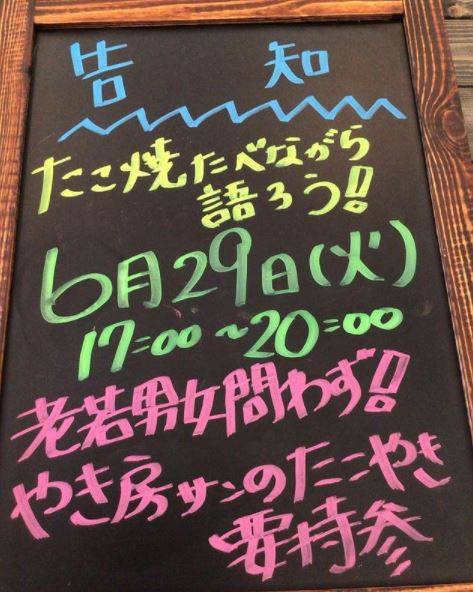 告知
たこ焼たべながら
語ろう!!
6月29日(火)
17:00~20:00
老若男女問わず!!
やき房サンのたこやき
要持参